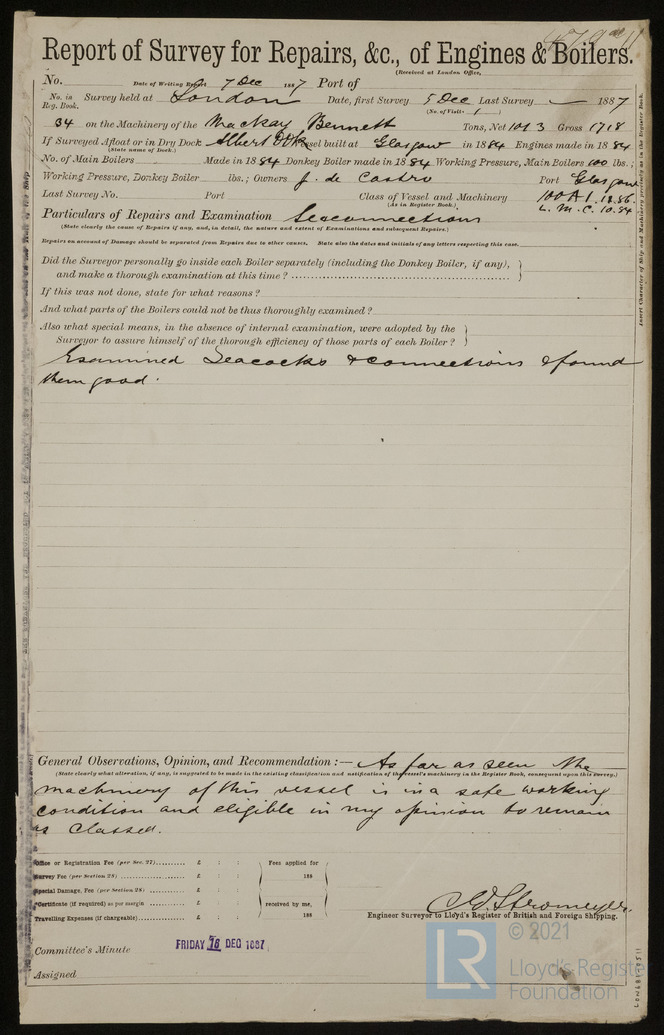 Report of Survey for Repairs, &c., of Engines & Boilers.
(Received at London Office,
No. Date of Writing Report 7 Dec 1887 Port of
No. in Reg. Book. Survey held at London Date, first Survey 5 Dec Last Survey — 1887
(No. of Visits 1 )
34 on the Machinery of the Mackay Bennett Tons, Net 1013 Gross 1718
If Surveyed Afloat or in Dry Dock Albert Dk Vessel built at Glasgow in 1884 Engines made in 1884
(State name of Dock.)
No. of Main Boilers Made in 1884 Donkey Boiler made in 1884 Working Pressure, Main Boilers 100 lbs.;
Working Pressure, Donkey Boiler lbs.; Owners J. de Castro Port Glasgow
Last Survey No. Port Class of Vessel and Machinery 100A1. 12.86.
(As in Register Book.) L.M.C. 10.84
Particulars of Repairs and Examination Seaconnections
(State clearly the cause of Repairs if any, and, in detail, the nature and extent of Examinations and subsequent Repairs.)
Repairs on account of Damage should be separated from Repairs due to other causes. State also the dates and initials of any letters respecting this case.
Did the Surveyor personally go inside each Boiler separately (including the Donkey Boiler, if any),
and make a thorough examination at this time?
If this was not done, state for what reasons?
And what parts of the Boilers could not be thus thoroughly examined?
Also what special means, in the absence of internal examination, were adopted by the
Surveyor to assure himself of the thorough efficiency of those parts of each Boiler?
Examined Seacocks & connections & found
them good.
General Observations, Opinion, and Recommendation :— As far as seen the
(State clearly what alteration, if any, is suggested to be made in the existing classification and notification of the vessel's machinery in the Register Book, consequent upon this survey.)
machinery of this vessel is in a safe working
condition and eligible in my opinion to remain
as Classed.
Office or Registration Fee (per Sec. 27) £ : : Fees applied for
Survey Fee (per Section 28) £ : : 188
Special Damage Fee (per Section 28) £ : :
Certificate (if required) as per margin £ : : received by me,
Travelling Expenses (if chargeable) £ : : 188
C.E. Stromeyer.
Engineer Surveyor to Lloyd's Register of British and Foreign Shipping.
Committee's Minute FRIDAY 16 DEC 1887
Assigned
Insert Character of Ship and Machinery precisely as in the Register Book.
© 2021
LR Lloyd's Register
Foundation